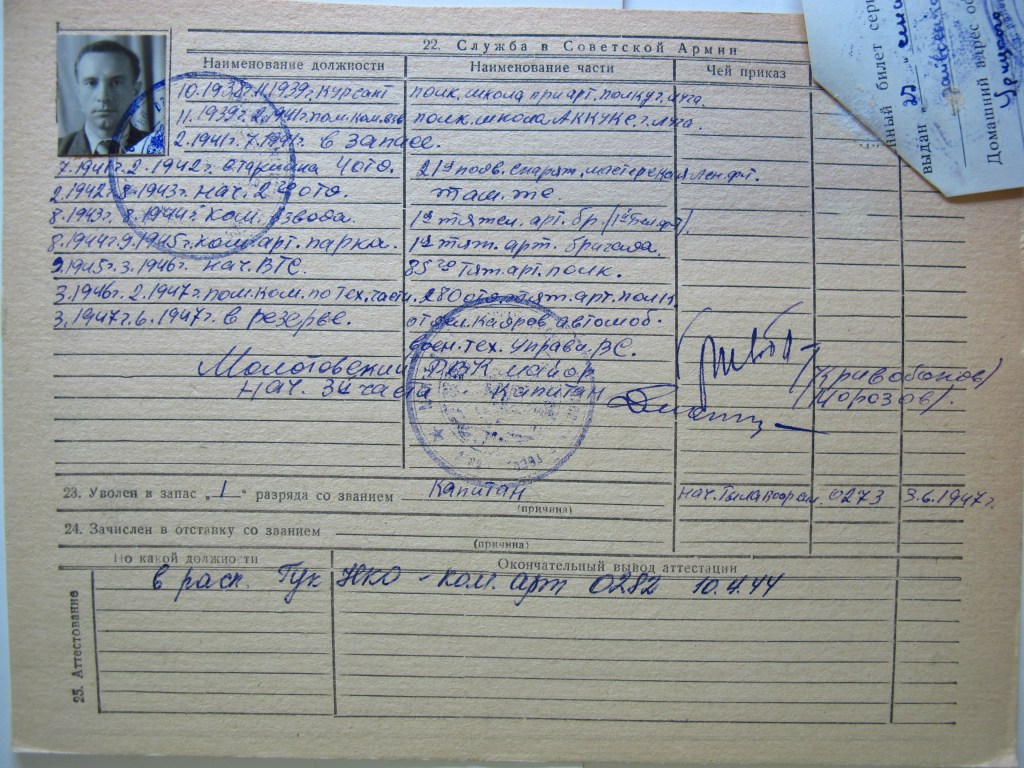 22. Служба в Советской Армии
Наименование должности Наименование части Чей приказ
10.1938г. 11.1939г. Курсант полк. школа при арт. полку г. Луга.
11.1939г. 2.1941г. пом. ком. полк. школа АККУКС г. Луга.
2.1941г. 7.1941г. в запасе.
7.1941г. 2.1942г. старшина 21я снаряж. мастерская Лен. фт.
2.1942г. 8.1943г. нач. там. же
8.1943г. 8.1944г. ком. взвода. 1я тяжел. арт. бр.
8.1944г. 9.1945г. ком. арт. парка. 1я тяж. арт. бригада.
9.1945г. 3.1946г. нач. ВТС. 85 тяж. арт. полк.
3.1946г. 2.1947г. пом. ком. по тех. части. 280 тяж. арт. полк
3.1947г. 6.1947г. в резерве. отдел. кадров автомоб.
воен. тех. управл. ВС.
Молотовский РВК майор
нач. 3й части капитан
Морозов
23. Уволен в запас „1“ разряда со званием Капитан 0273 3.6.1947г.
(причина)
24. Зачислен в отставку со званием
(причина)
25. Аттестование
По какой должности Окончательный вывод аттестации
в расп. Гук НКО - ком. арт 0282 10.4.44
билет сери
выдан „25“
Домашний адрес
Урицкого